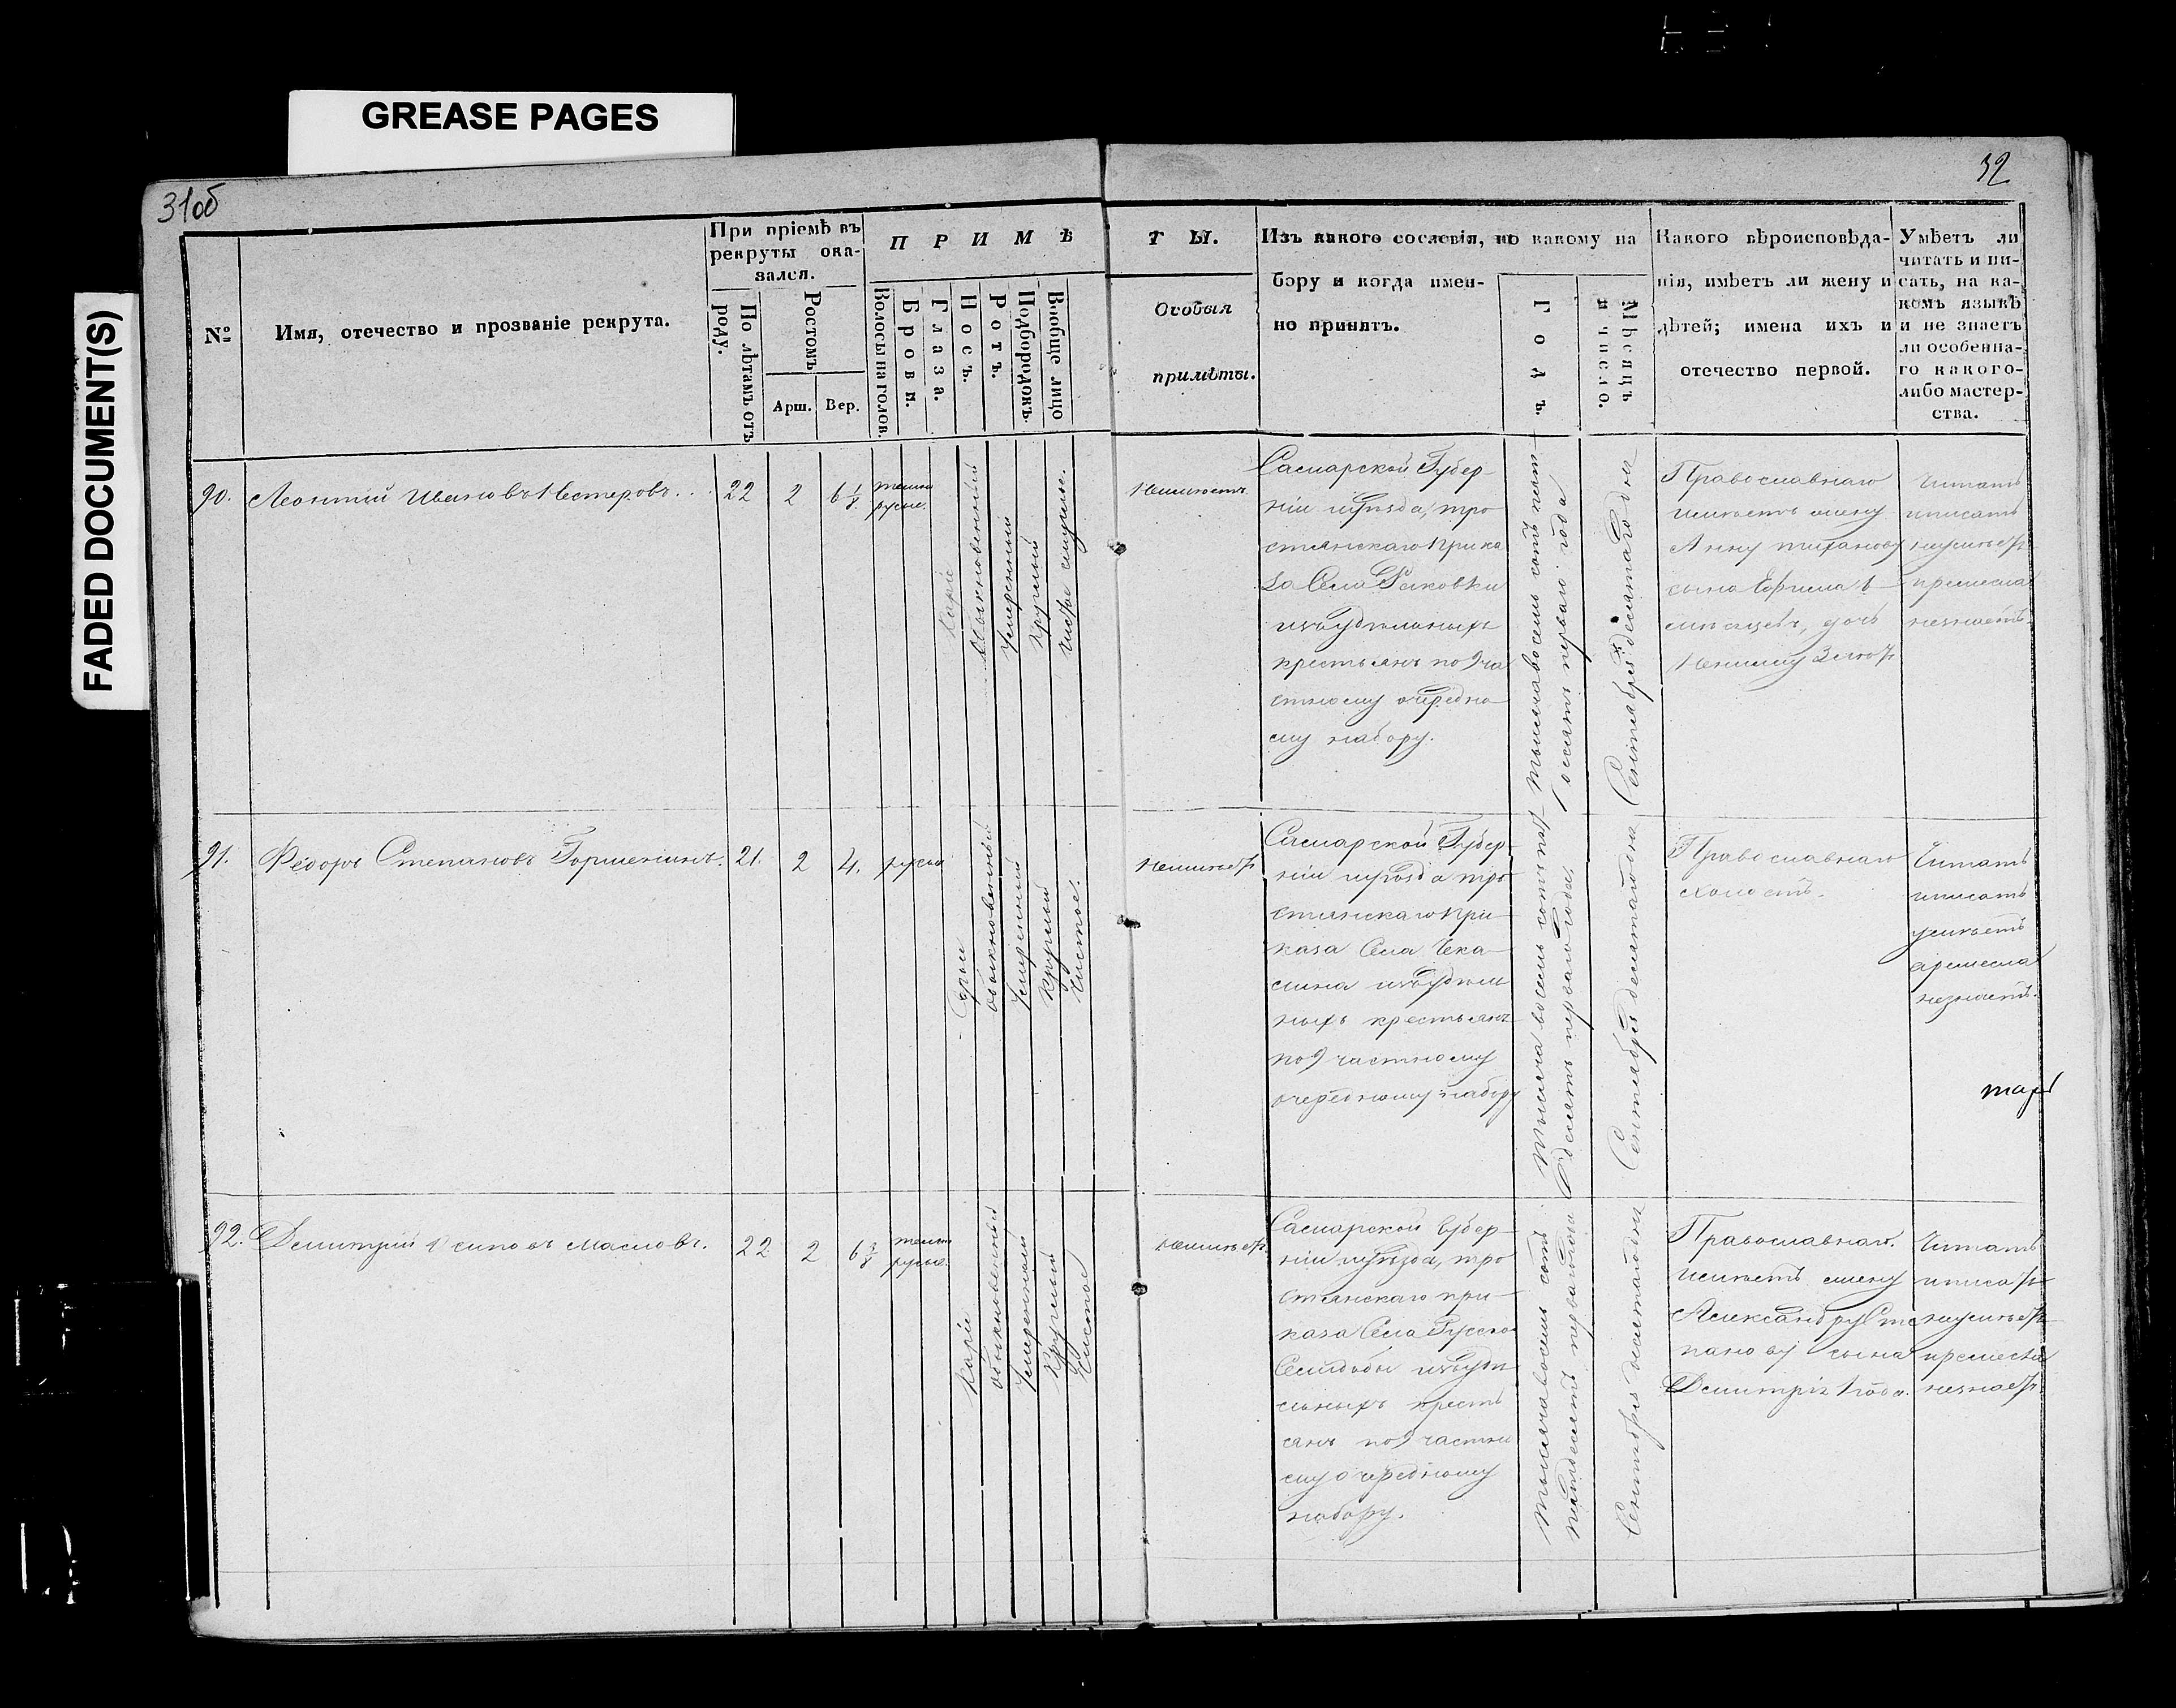 GREASE PAGES
FADED DOCUMENT(S)
31об
32
№
Имя, отечество и прозваніе рекрута.
При пріемѣ въ
рекруты ока-
зался.
По лѣтамъ отъ
роду.
Ростомъ
Арш.
Вер.
ПРИМѢ
Волосы на голов.
Брови.
Глаза.
Носъ.
Ротъ.
Подбородокъ.
Вообще лицо
ТЫ.
Особыя
примѣты.
Изъ какого сословія, по какому на
бору и когда имен-
но принятъ.
Годъ.
Мѣсяцъ
и число.
Какого вѣроисповѣда-
нія, имѣетъ ли жену и
дѣтей; имена ихъ и
отечество первой.
Умѣетъ ли
читать и пи-
сать, на ка-
комъ языкѣ
и не знаетъ
ли особенна-
го какого-
либо мастер-
ства.
90.
Леонтій Ивановъ Нестеровъ.
22
2
6 1/8
темно
русые.
Каріе
Обыкновенный
Умеренный
Круглый
Чистое смуглое.
Неимѣетъ
Самарской Губер-
ніи иуѣзда, тро
стянскаго Прика
за Села Раковки
изъудѣльныхъ
крестьянъ по 9 ча
стному очередно-
му набору.
Тысяча восемь сотъ пять
десятъ перваго года
Сентября десятаго дня
Православнаго
имѣетъ жену
Анну
сына Ефима
мѣсяцевъ, дочь
Читать
иписать
неумѣетъ
иремесла
незнаетъ.
91.
Федоръ Степановъ Горшенинъ.
21.
2
4.
русые
Серые
обыкновенный
Умеренный
Круглый
Чистое.
Неимѣетъ
Самарской Губер-
ніи иуѣзда тро
стянскаго при-
каза Села Чека-
лина изъудѣль
ныхъ крестьянъ
по 9 частному
очередному набору
Тысяча восемь сотъ пять
десятъ перваго года
Сентября десятаго дня
Православнаго
холостъ.
Читать
иписать
умѣетъ
аремесла
незнаетъ.
92.
Дмитрій Осиповъ Масловъ.
22
2
6 3/8
темно
русые.
Каріе
обыкновенный
Умеренный
Круглый
Чистое
Неимѣетъ
Самарской Губер-
ніи иуѣзда, тро
стянскаго при-
каза Села Русской
Селидьбы изъудѣ
льныхъ кресть
янъ по 9 частно
му очередному
набору.
Тысяча восемь сотъ
пятдесятъ перваго года
Сентября десятаго дня
Православнаго.
имѣетъ жену
Александру Сте
панову сына
Дмитрія 1 года.
Читать
иписать
неумѣетъ
иремесла
незнаетъ